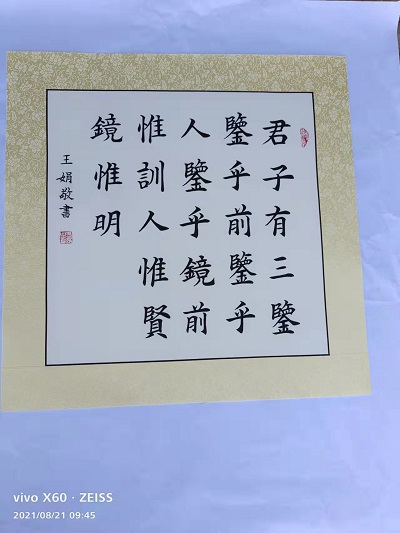 君子有三鑒
鑒乎前鑒乎
人鑒乎鏡前
惟訓人惟賢
鏡惟明
王娟敬書
vivo X60 · ZEISS
2021/08/21 09:45